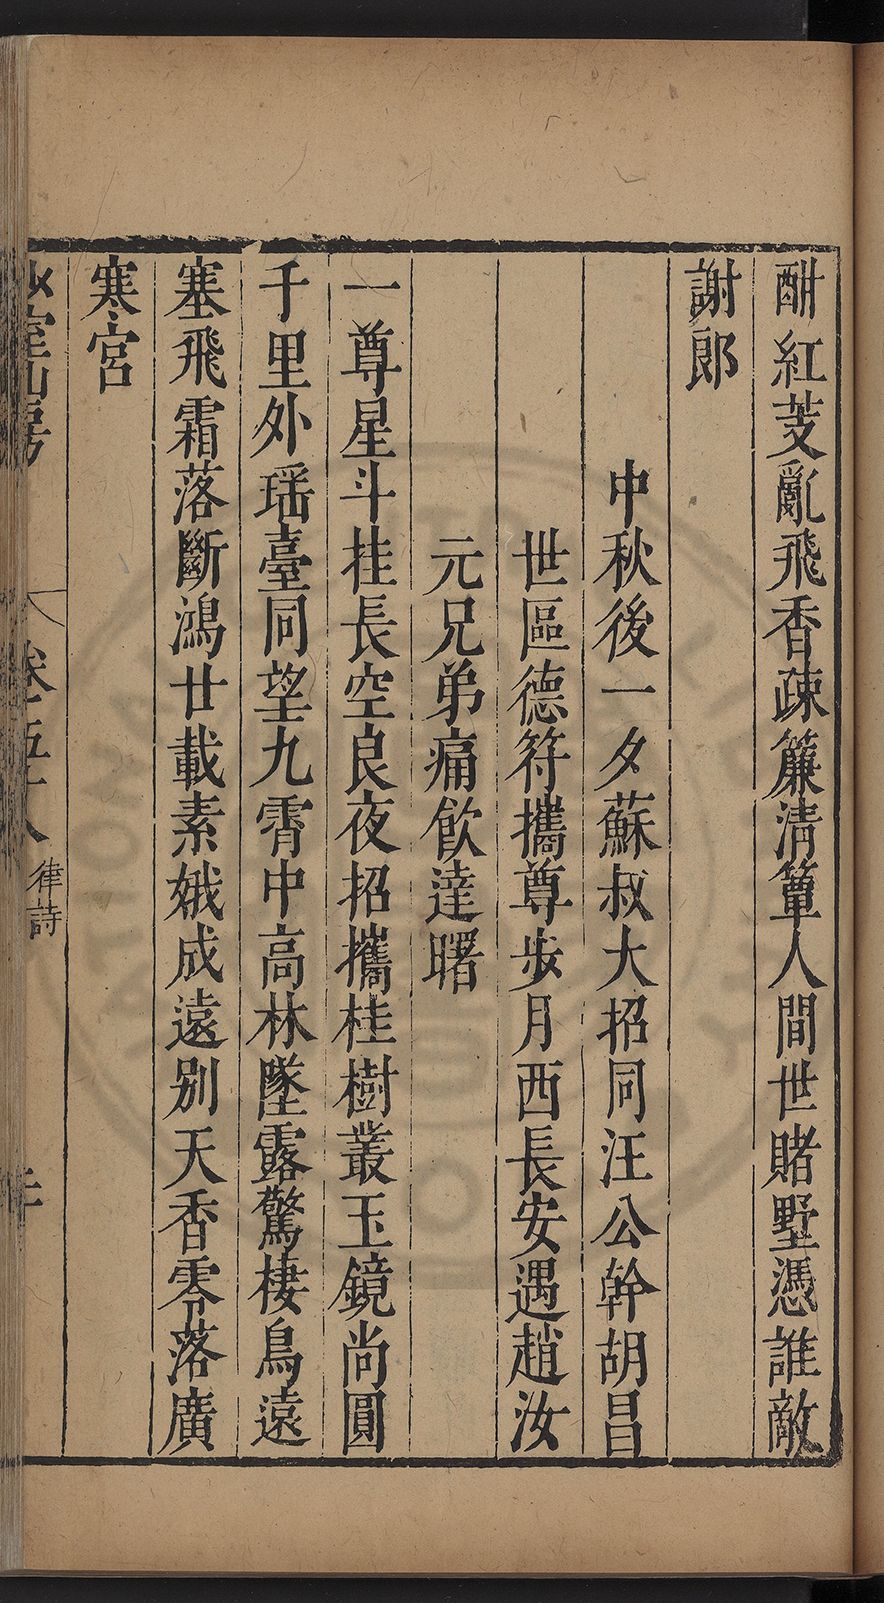 酣紅芰亂飛香疎簾清簟人間世賭墅憑誰敵
謝郎
中秋後一夕蘇叔大招同汪公幹胡昌
世區德符攜尊步月西長安遇趙汝
元兄弟痛飲達曙
一尊星斗挂長空良夜招攜桂樹叢玉鏡尚圓
千里外瑶臺同望九霄中高林墜露驚棲鳥遠
塞飛霜落斷鴻廿載素娥成遠別天香零落廣
寒宮
室山房
卷五十八
律詩